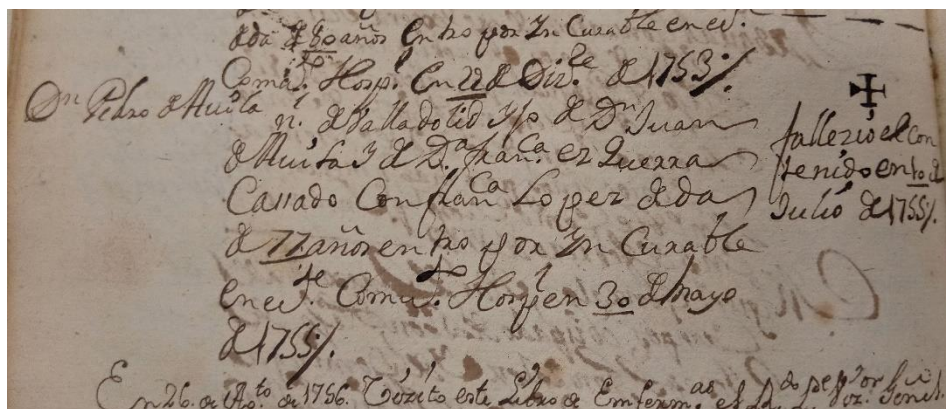 edad de 80 años entro por Yn Curable en est.
Comũ.te Hospl. en 22 de Diz.re de 1753 %.
Dn Pedro de Auila
n.l de Balladolid Yjo de Dn Juan
de Auila Y de D.a Fran.ca ez Guerra
Cassado Con fran.ca Lopez edad
de 77 años entro por Yn Curable
en est.e Comũ.te Hospl en 30 de Mayo
de 1755 %.
fallezió el con
tenido en 10 de
Julio de 1755 %.
En 26. de Ag.to de 1756. este Libro de Enferm.as el